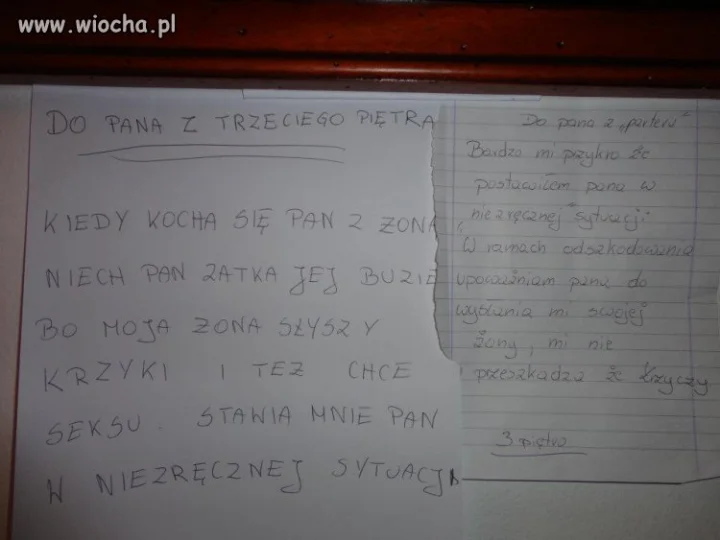 www.wiocha.pl
DO PANA Z TRZECIEGO PIĘTRA
KIEDY KOCHA SIĘ PAN Z ZONĄ
NIECH PAN ZATKA JEJ BUZIE
BO MOJA ZONA SŁYSZY
KRZYKI I TEZ CHCE
SEKSU. STAWIA MNIE PAN
W NIEZRĘCZNEJ SYTUACJI
Do pana z „parteru"
Bardzo mi przykro że
postawiłem pana w
„niezręcznej" sytuacji.
W ramach odszkodowania
upoważniam pana do
wysłania mi swojej
żony, mi nie
przeszkadza że krzyczy
3 piętro